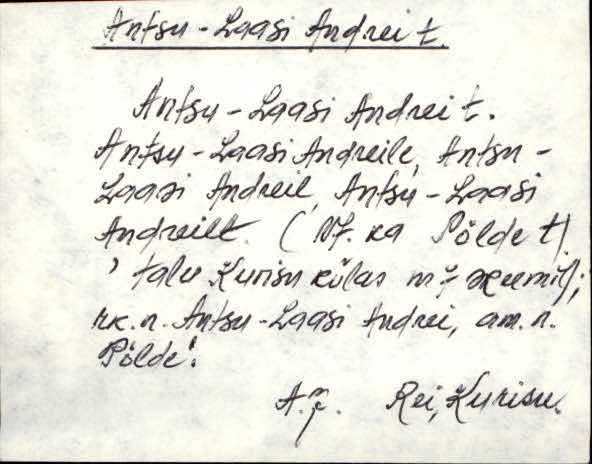 Antsu-Laasi Andrei t.
Antsu-Laasi Andrei t.
Antsu-Laasi Andreile, Antsu-
Laasi Andreil, Antsu-Laasi
Andreilt. (Vt. ka Põlde t)
' talu Kurisu külas
rk. n. Antsu-Laasi Andrei, am. n.
Põlde'.
Rei, Kurisu.